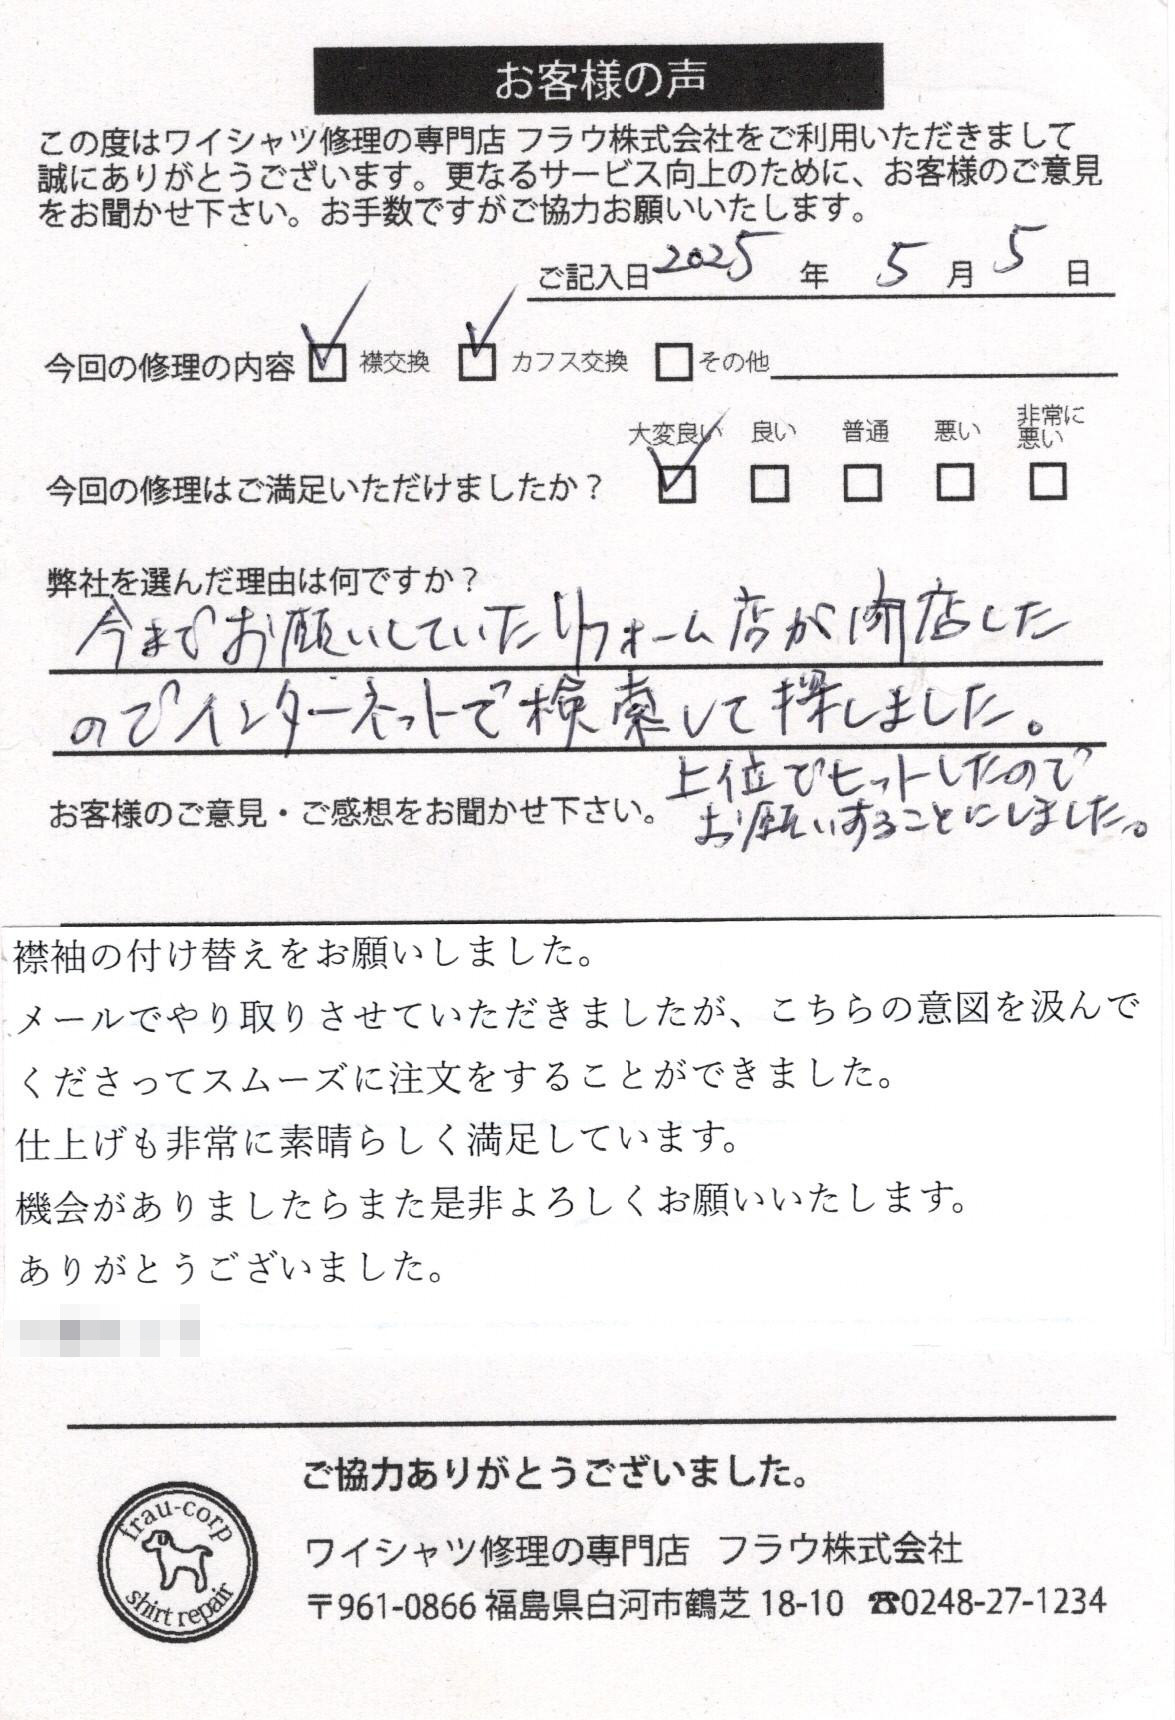 お客様の声
この度はワイシャツ修理の専門店 フラウ株式会社をご利用いただきまして
誠にありがとうございます。更なるサービス向上のために、お客様のご意見
をお聞かせ下さい。お手数ですがご協力お願いいたします。
ご記入日 2025 年 5 月 5 日
今回の修理の内容 襟交換 カフス交換 その他
大変良い 良い 普通 悪い 非常に悪い
今回の修理はご満足いただけましたか？
弊社を選んだ理由は何ですか？
今までお願いしていたリフォーム店が閉店した
のでインターネットで検索して探しました。
上位でヒットしたので
お願いすることにしました。
お客様のご意見・ご感想をお聞かせ下さい。
襟袖の付け替えをお願いしました。
メールでやり取りさせていただきましたが、こちらの意図を汲んで
くださってスムーズに注文をすることができました。
仕上げも非常に素晴らしく満足しています。
機会がありましたらまた是非よろしくお願いいたします。
ありがとうございました。
ご協力ありがとうございました。
frau-corp
shirt repair
ワイシャツ修理の専門店 フラウ株式会社
〒961-0866 福島県白河市鶴芝 18-10 ☎0248-27-1234